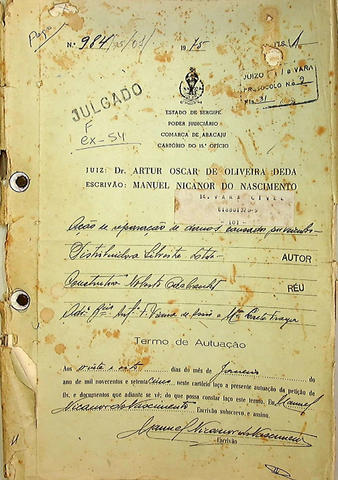 Paga
N.º 984/75/01/ 1975 Fls. 1
JUIZO 1a VARA
PROTOCOLO N.o 2
Fls. 31
JULGADO
F
ex-54
ESTADO DE SERGIPE
PODER JUDICIÁRIO
COMARCA DE ARACAJU
CARTÓRIO DO 15.º OFÍCIO
JUIZ: Dr. ARTUR OSCAR DE OLIVEIRA DÉDA
ESCRIVÃO: MANUEL NICANOR DO NASCIMENTO
VARA CIVEL
101
Ação de reparação de danos causados
Distribuidora Silvestre Ltda AUTOR
Construtora Norberto Odebrecht RÉU
Termo de Autuação
Aos vinte e oito dias do mês de Janeiro do
ano de mil novecentos e setenta e cinco neste cartório faço a presente autuação da petição de
fls. e documentos que adiante se vê; do que para constar faço este termo. Eu Manuel
Nicanor do Nascimento Escrivão subscrevo e assino.
Manuel Nicanor do Nascimento
Escrivão